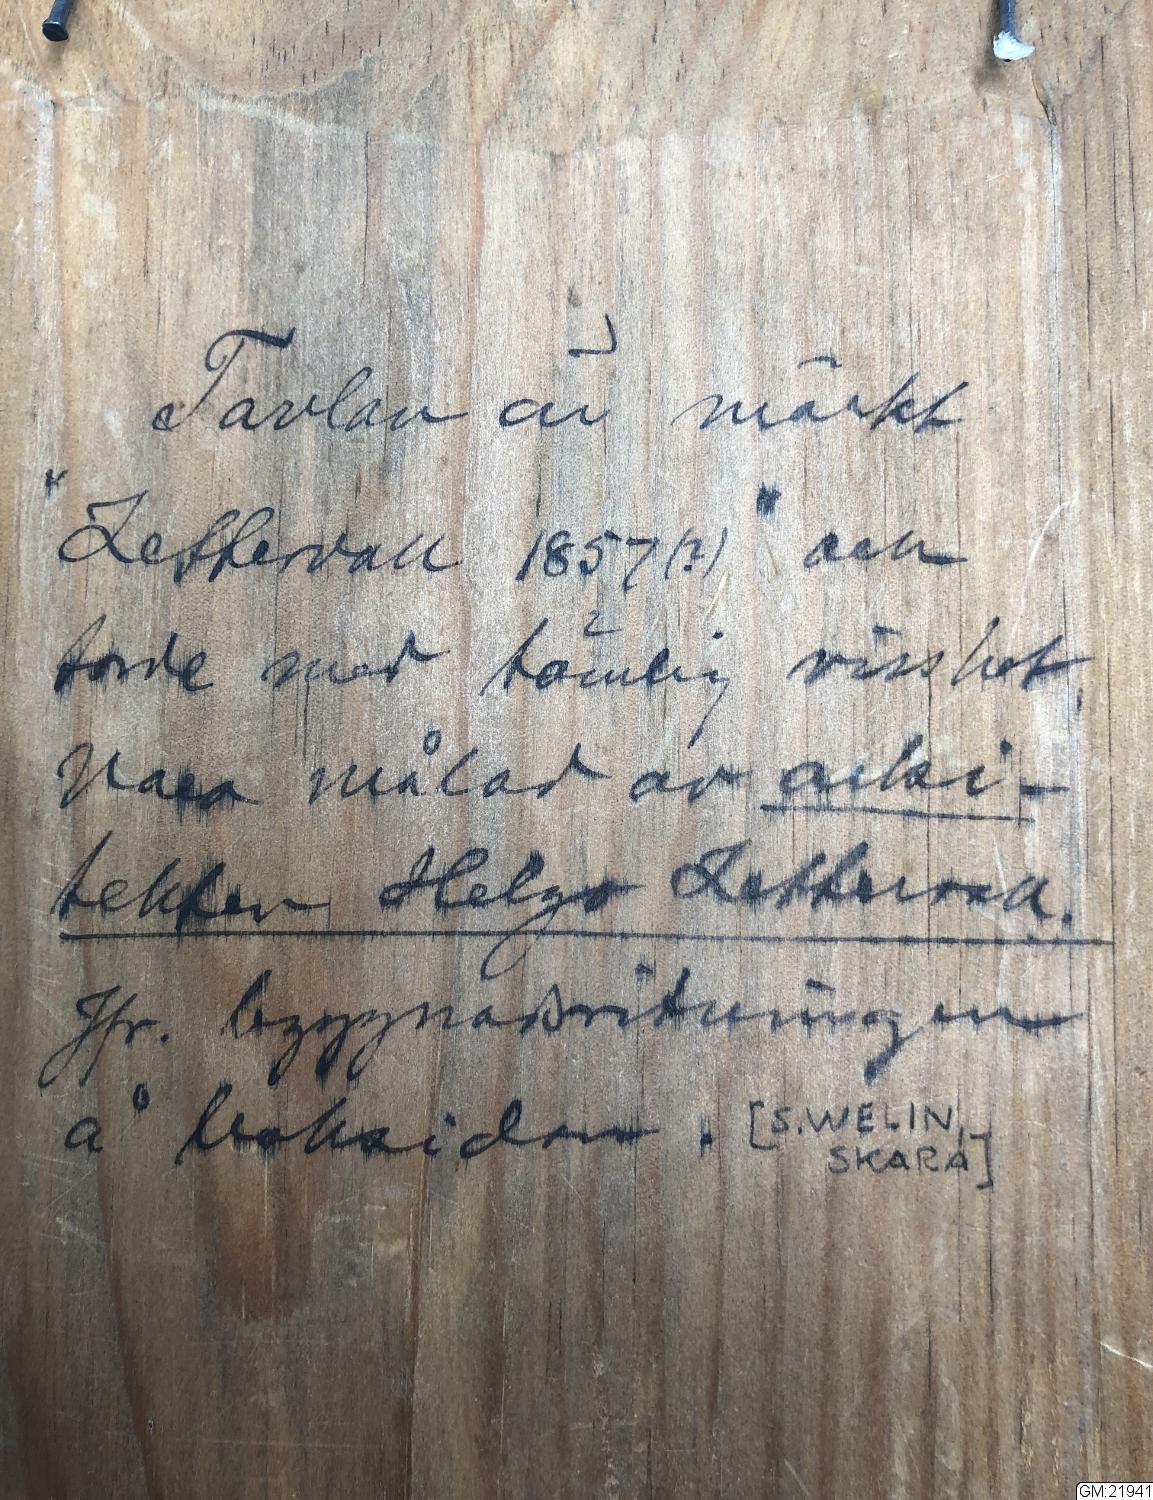 Tavlan är märkt
"Zettervall 1857(?)" och
torde med tämlig visshet
vara målad av arki-
tekten Helgo Zettervall.
Jfr. byggnadsritningen
å baksidan. [S. WELIN,
SKARA]
GM:21941